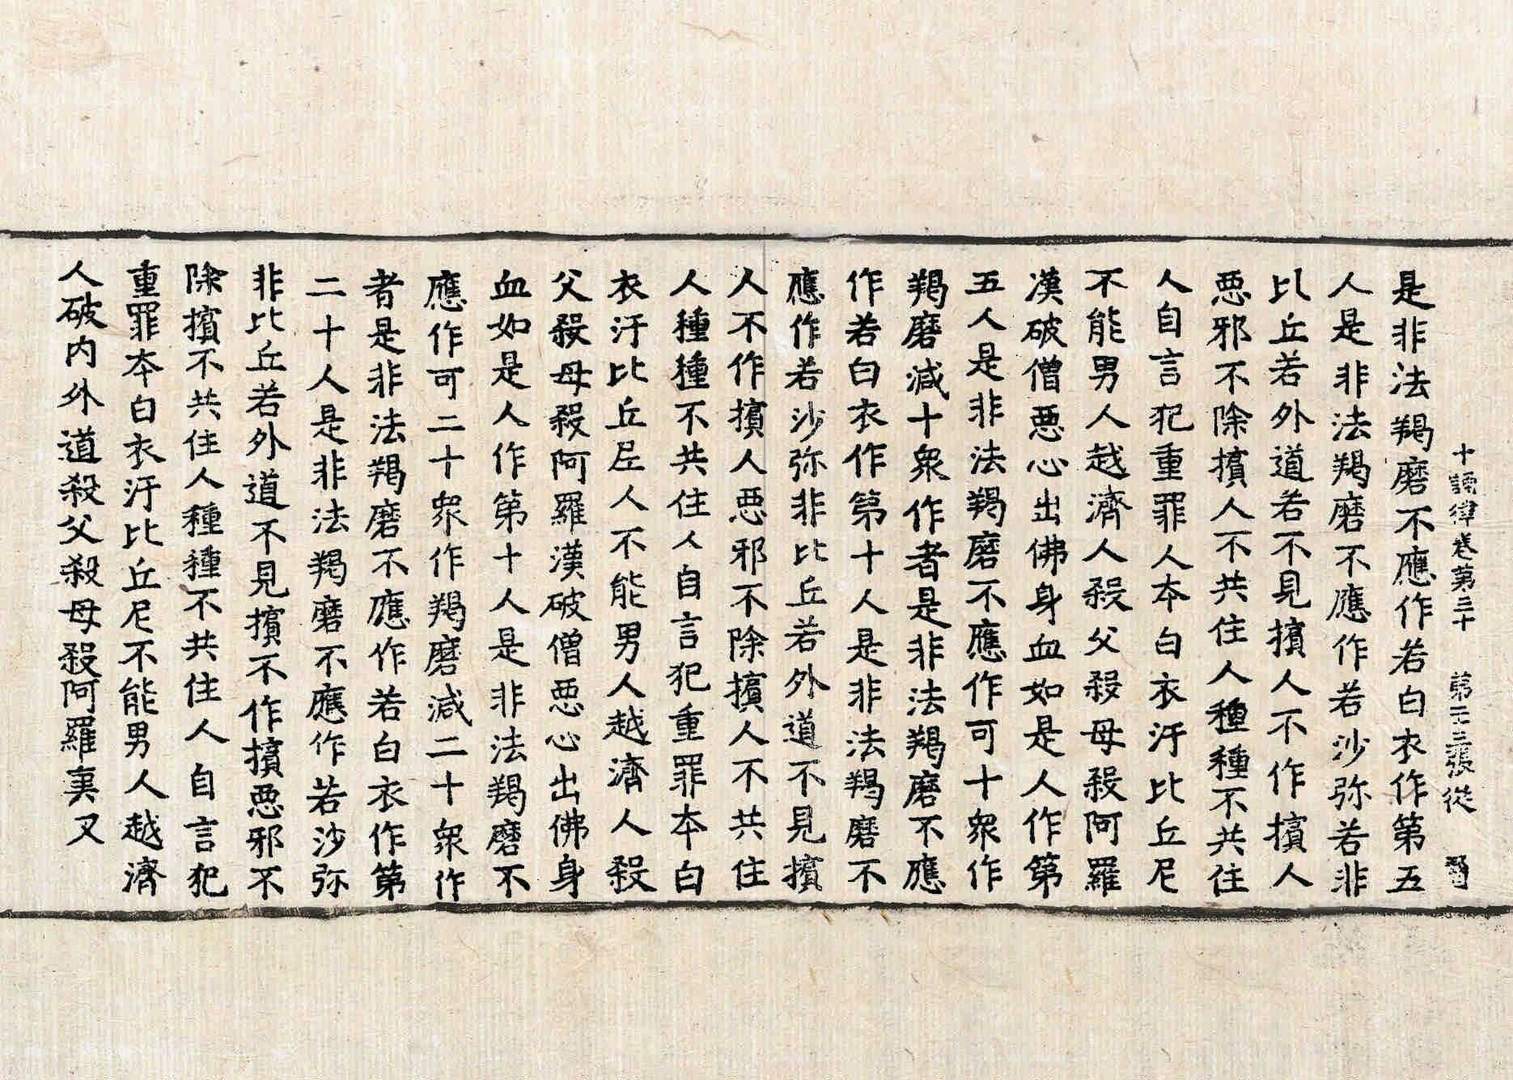 十誦律卷第三十 第 三張 從
是非法羯磨不應作若白衣作第五
人是非法羯磨不應作若沙弥若非
比丘若外道若不見擯人不作擯人
悪邪不除擯人不共住人種種不共住
人自言犯重罪人本白衣汙比丘尼
不能男人越濟人殺父殺母殺阿羅
漢破僧悪心出佛身血如是人作第
五人是非法羯磨不應作可十衆作
羯磨減十衆作者是非法羯磨不應
作若白衣作第十人是非法羯磨不
應作若沙弥非比丘若外道不見擯
人不作擯人悪邪不除擯人不共住
人種種不共住人自言犯重罪本白
衣汙比丘尼人不能男人越濟人殺
父殺母殺阿羅漢破僧悪心出佛身
血如是人作第十人是非法羯磨不
應作可二十衆作羯磨減二十衆作
者是非法羯磨不應作若白衣作第
二十人是非法羯磨不應作若沙弥
非比丘若外道不見擯不作擯悪邪不
除擯不共住人種種不共住人自言犯
重罪本白衣汙比丘尼不能男人越濟
人破内外道殺父殺母殺阿羅 又